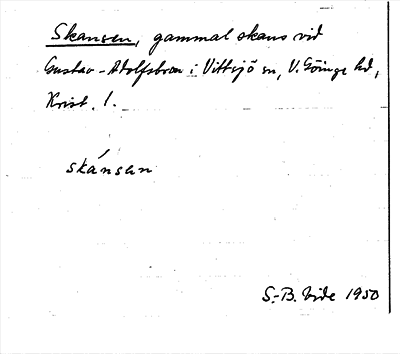 Skansen, gammal skans vid
Gustav-Adolfsbron i Vittsjö sn, V. Göinge hd,
Krist. l.
skánsen
S.-B. Vide 1950